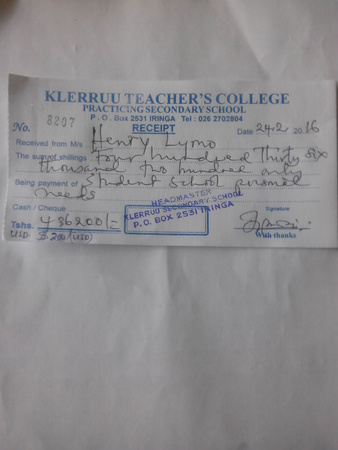 KLERRUU TEACHER'S COLLEGE
PRACTICING SECONDARY SCHOOL
P.O. Box 2531 IRINGA Tel : 026 2702804
No. 8207 RECEIPT Date 24.2 2016
Received from M/s Henry Lymo
The sum of shillings four hundred Thirty six
thousand two hundred only
Being payment of Student School personal
needs
HEADMASTER
KLERRUU SECONDARY SCHOOL
P.O. BOX 2531 IRINGA
Cash / Cheque
Tshs. 436200/=
Signature
With thanks